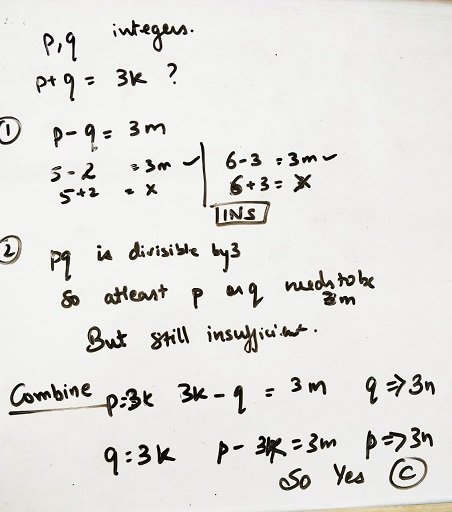 p,q integers.
p+q = 3k ?
① p-q = 3m
5-2 = 3m ✓
5+2 = x
6-3 = 3m ✓
6+3 = x
INS
② pq is divisible by 3
So atleast p or q needs to be 3m
But still insufficient.
Combine p=3k 3k-q = 3m q => 3n
q=3k p-3k = 3m p => 3n
So Yes Ⓒ